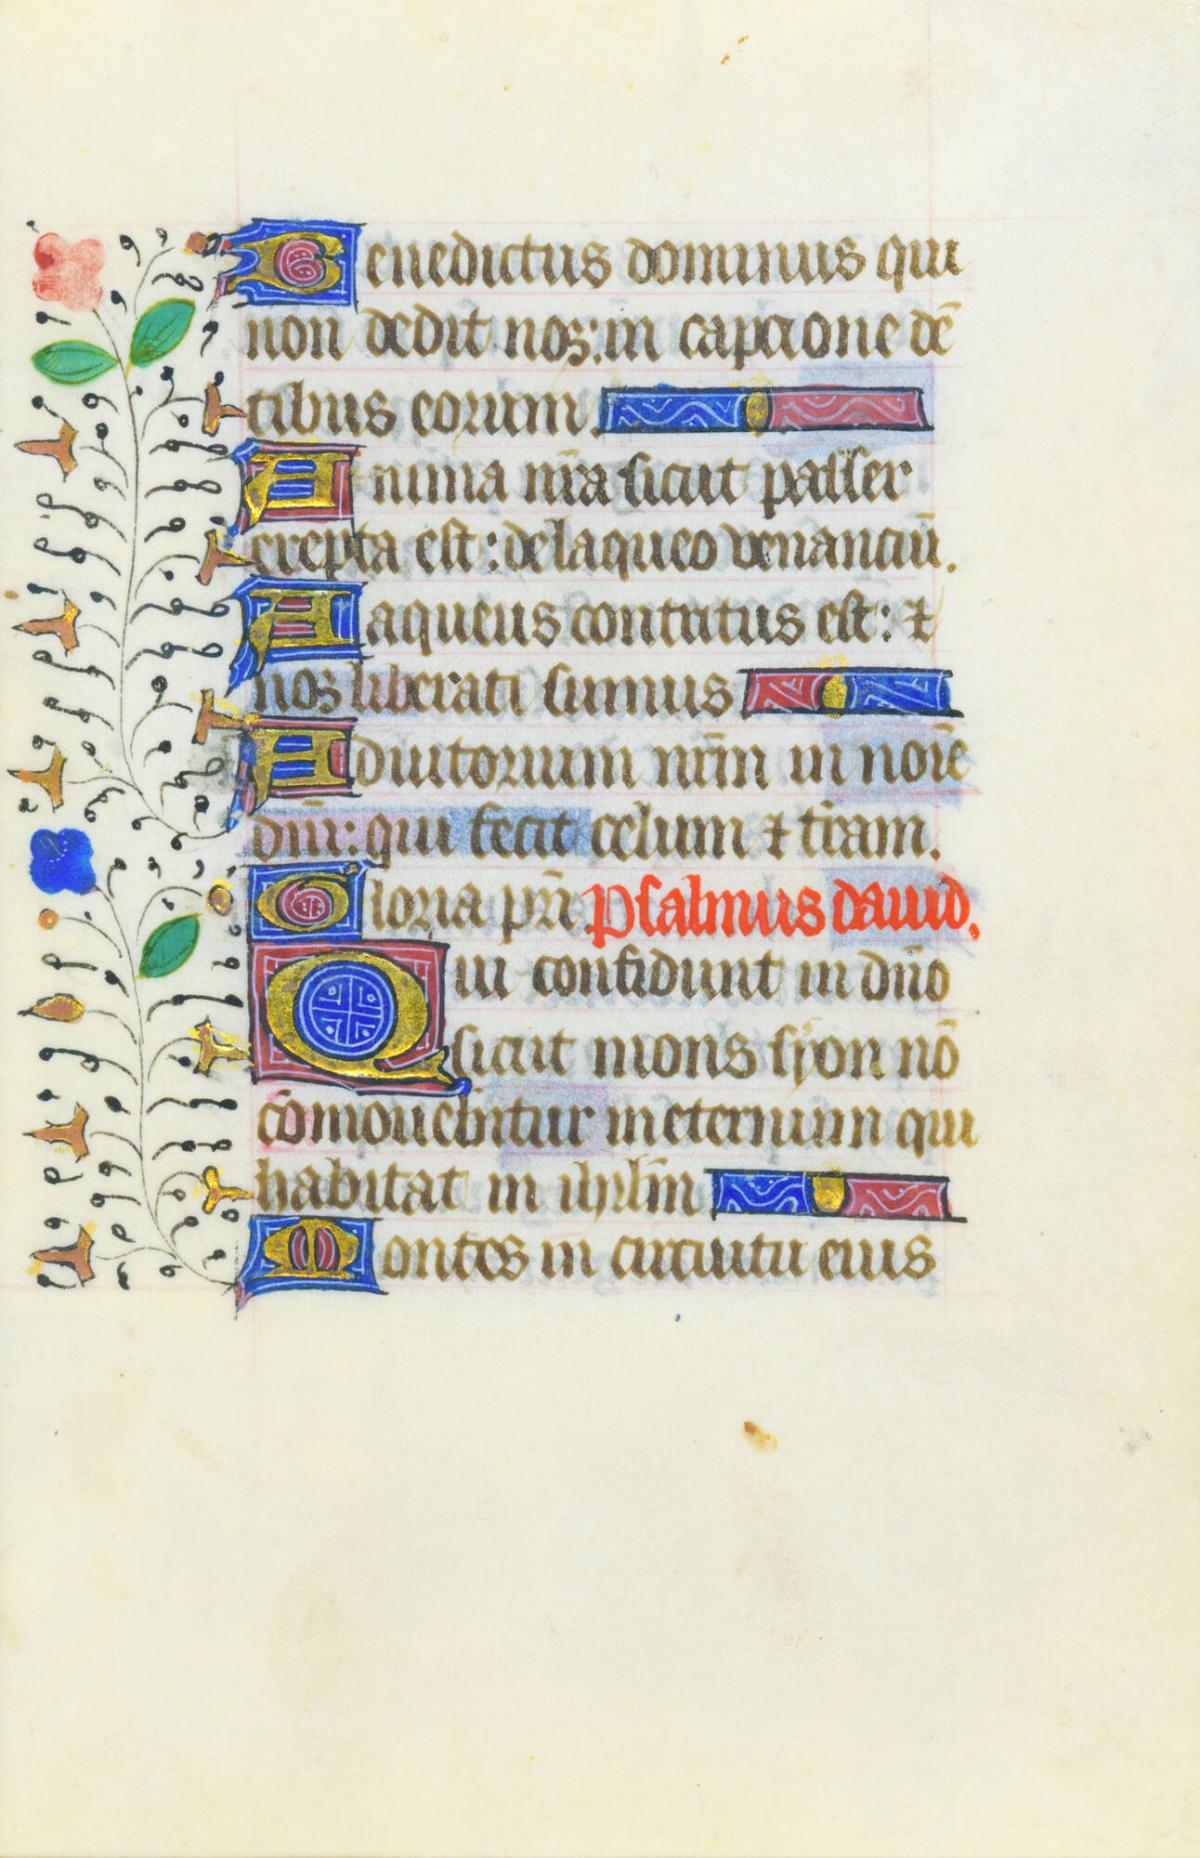 Benedictus dominus qui
non dedit nos: in capcione dē
tibus eorum.
Anima nr̄a sicut passer
erepta est: de laqueo venanciū.
Laqueus contritus est: ⁊
nos liberati sumus
Adiutorium nr̄m in noīe
dn̄i: qui fecit celum ⁊ tr̄am.
Gloria pr̄i. Psalmus dauid.
Qui confidunt in dn̄o
sicut mons syon nō
cōmouebitur in eternum qui
habitat in ihrlm̄
Montes in circuitu eius